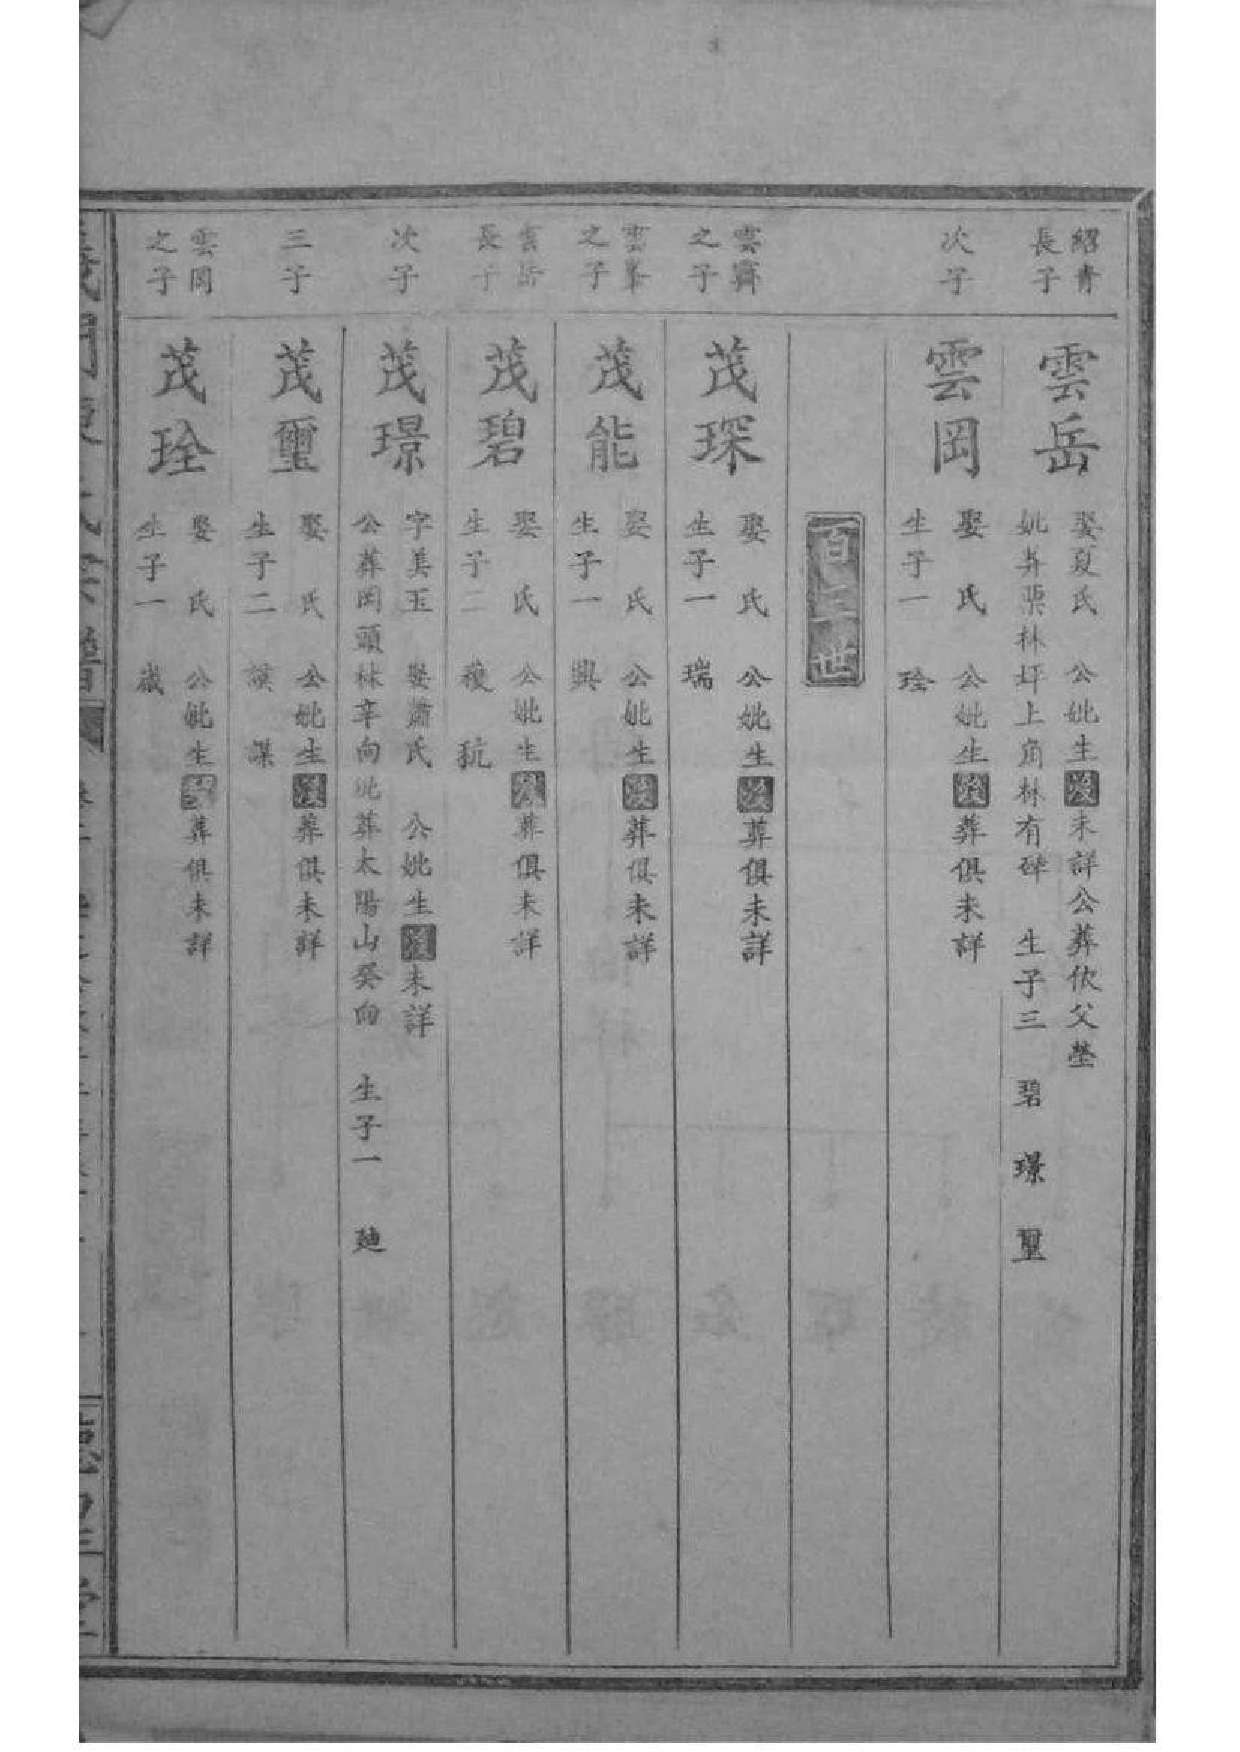 紹青
長子
雲岳
娶夏氏 公妣生歿未詳公葬依父塋
妣葬栗林坪上角林有碑 生子三 碧 璟 璽
次子
雲岡
娶 氏 公妣生歿葬俱未詳
生子一 珍
百三世
雲霽
之子
茂琛
娶 氏 公妣生歿葬俱未詳
生子一 瑞
雲峯
之子
茂能
娶 氏 公妣生歿葬俱未詳
生子一 興
雲岳
長子
茂碧
娶 氏 公妣生歿葬俱未詳
生子二 稜 秔
次子
茂璟
字美玉 娶蕭氏 公妣生歿未詳
公葬岡頭林辛向妣葬太陽山癸向 生子一 廸
三子
茂璽
娶 氏 公妣生歿葬俱未詳
生子二 謨 謀
雲岡
之子
茂珍
娶 氏 公妣生歿葬俱未詳
生子一 歲
義門陳氏宗譜